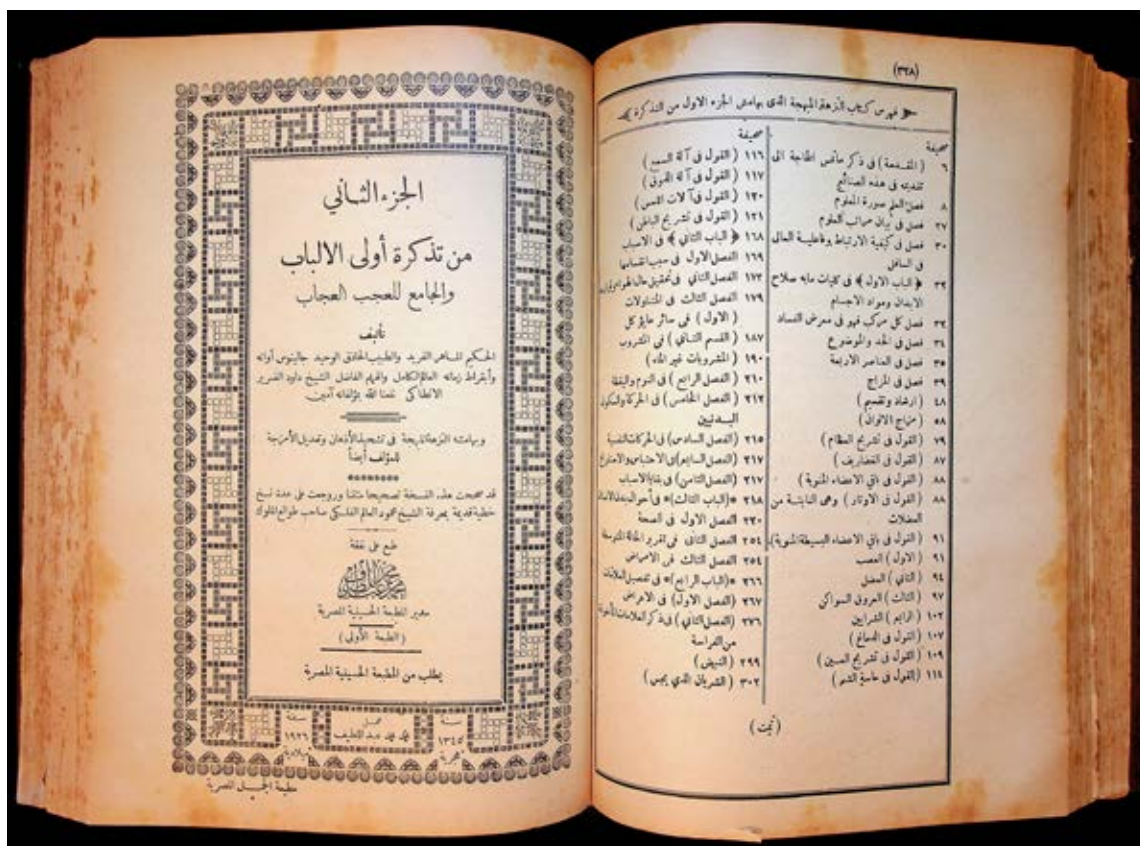 (٣٢٨)
فهرس كتاب النزهة المبهجة الذى بهامش الجزء الاول من التذكرة
صحيفة
٦ (المقدمة) فى ذكر مأتمس الحاجة الى
تقديمه فى هذه الصنائع
٨ فصل العلم صورة المعلوم
٢٧ فصل فى بيان مراتب العلوم
٣٠ فصل فى كيفية الارتباط وفاعلية العالى
فى السافل
٣٢ ﴿الباب الاول﴾ فى كليات مابه صلاح
الابدان ومواد الاجسام
٣٢ فصل كل مركب فهو فى معرض الفساد
٣٤ فصل فى الحد والموضوع
٣٥ فصل فى العناصر الاربعة
٣٩ فصل فى المزاج
٤٨ (ارشاد وتقسيم)
٥٨ (مزاج الالوان)
٧٩ (القول فى تشريح العظام)
٨٧ (القول فى الغضاريف)
٨٨ (القول فى باقى الاعضاء المنوية)
٨٨ (القول فى الاوتار) وهى النابتة من
العضلات
٩١ (القول فى باقى الاعضاء البسيطة المنوية)
٩١ (الاول) العصب
٩٤ (الثانى) العضل
٩٧ (الثالث) العروق السواكن
١٠٢ (الرابع) الشرايين
١٠٧ (القول فى الدماغ)
١٠٩ (القول فى تشريح العين)
١١٤ (القول فى حاسة الشم)
صحيفة
١١٦ (القول فى آلة السمع)
١١٧ (القول فى آلة الذوق)
١٢٠ (القول فى آلات اللمس)
١٢١ (القول فى تشريح الباطن)
١٦٨ ﴿الباب الثانى﴾ فى الاسباب
١٦٩ الفصل الاول فى سبب انقسامها
١٧٣ الفصل الثانى فى تحقيق حال الهواء
١٧٩ الفصل الثالث فى المتناولات
(الاول) فى سائر مايؤكل
١٨٧ (القسم الثانى) فى المشروب
١٩٠ (المشروبات غير الماء)
٢١٠ (الفصل الرابع) فى النوم واليقظة
٢١٢ (الفصل الخامس) فى الحركة والسكون
البدنيين
٢١٥ (الفصل السادس) فى الحركات النفسية
٢١٧ (الفصل السابع) فى الاحتباس والاستفراغ
٢١٧ (الفصل الثامن) فى بقايا الاسباب
٢١٨ *(الباب الثالث)* فى أحوال
٢٢٠ الفصل الاول فى الصحة
٢٥٤ الفصل الثانى فى تقرير الحالة المتوسطة
٢٥٤ الفصل الثالث فى الامراض
٢٦٦ *(الباب الرابع)* فى تفصيل العلامات
٢٦٧ (الفصل الاول) فى الاعراض
٢٧٦ (الفصل الثانى) فى ذكر العلامات المأخوذة
من الفراسة
٢٩٩ (النبض)
٣٠٢ (الشريان الذي يجس)
(تمت)
الجزء الثاني
من تذكرة أولى الالباب
والجامع للعجب العجاب
تأليف
الحكيم الماهر الفريد والطبيب الحاذق الوحيد جالينوس أوانه
وأبقراط زمانه العالم الكامل والفهم الفاضل الشيخ داود الضرير
الانطاكى نفعنا الله بمؤلفاته آمين
وبهامشه النزهة المبهجة فى تشحيذ الأذهان وتعديل الأمزجة
للمؤلف أيضاً
قد صححت هذه النسخة تصحيحا متقنا وروجعت على عدة نسخ
خطية قديمة بمعرفة الشيخ محمود العالم الفلكى صاحب طوالع الملوك
طبع على نفقة
محمد عبد اللطيف
مدير المطبعة الحسينية المصرية
(الطبعة الأولى)
يطلب من المطبعة الحسينية المصرية
سنة ١٣٤٥ هجرية
محل محمد محمد عبد اللطيف
سنة ١٩٢٦ ميلادية
مطبعة الجمل المصرية